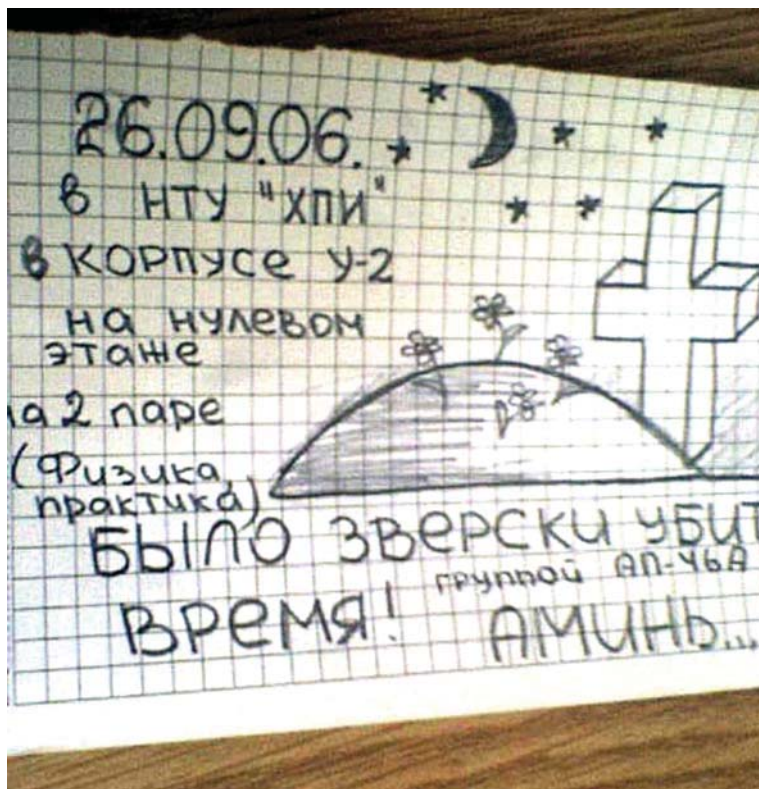 26.09.06.
в НТУ "ХПИ"
в КОРПУСЕ У-2
на нулевом
этаже
на 2 паре
(Физика,
практика)
БЫЛО ЗВЕРСКИ УБИТ
группой АП-46А
ВРЕМЯ!
АМИНЬ...